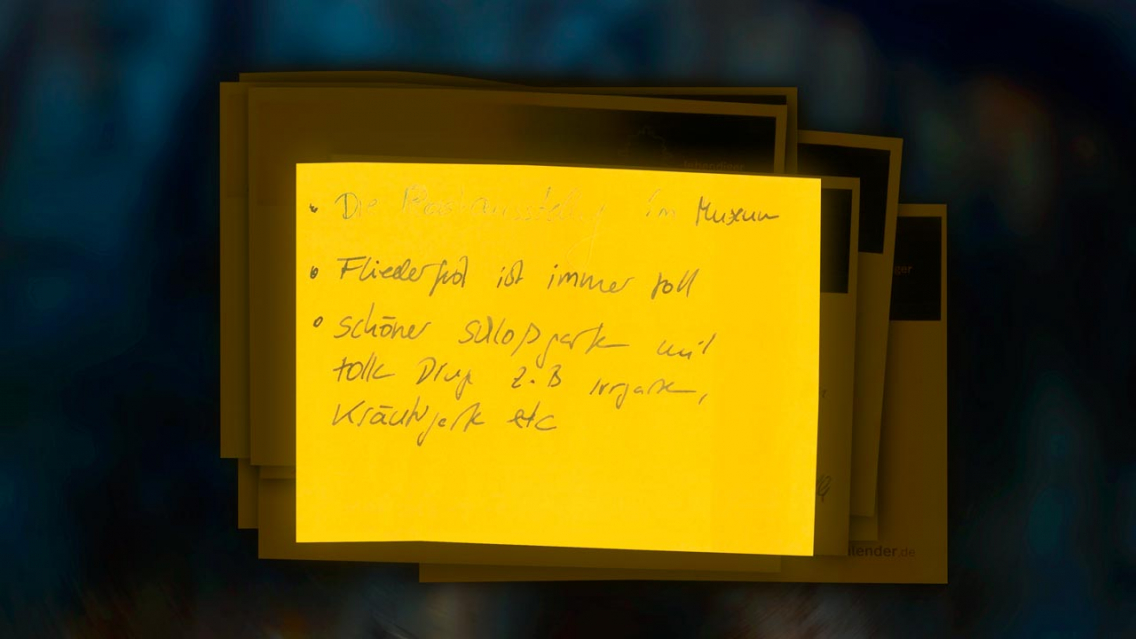 Die Postausstellung im Museum
Fliederfest ist immer toll
schöner Schloßgarten mit
tolle Dinge z.B Irrgarten,
Kräutergarten etc
lender.de